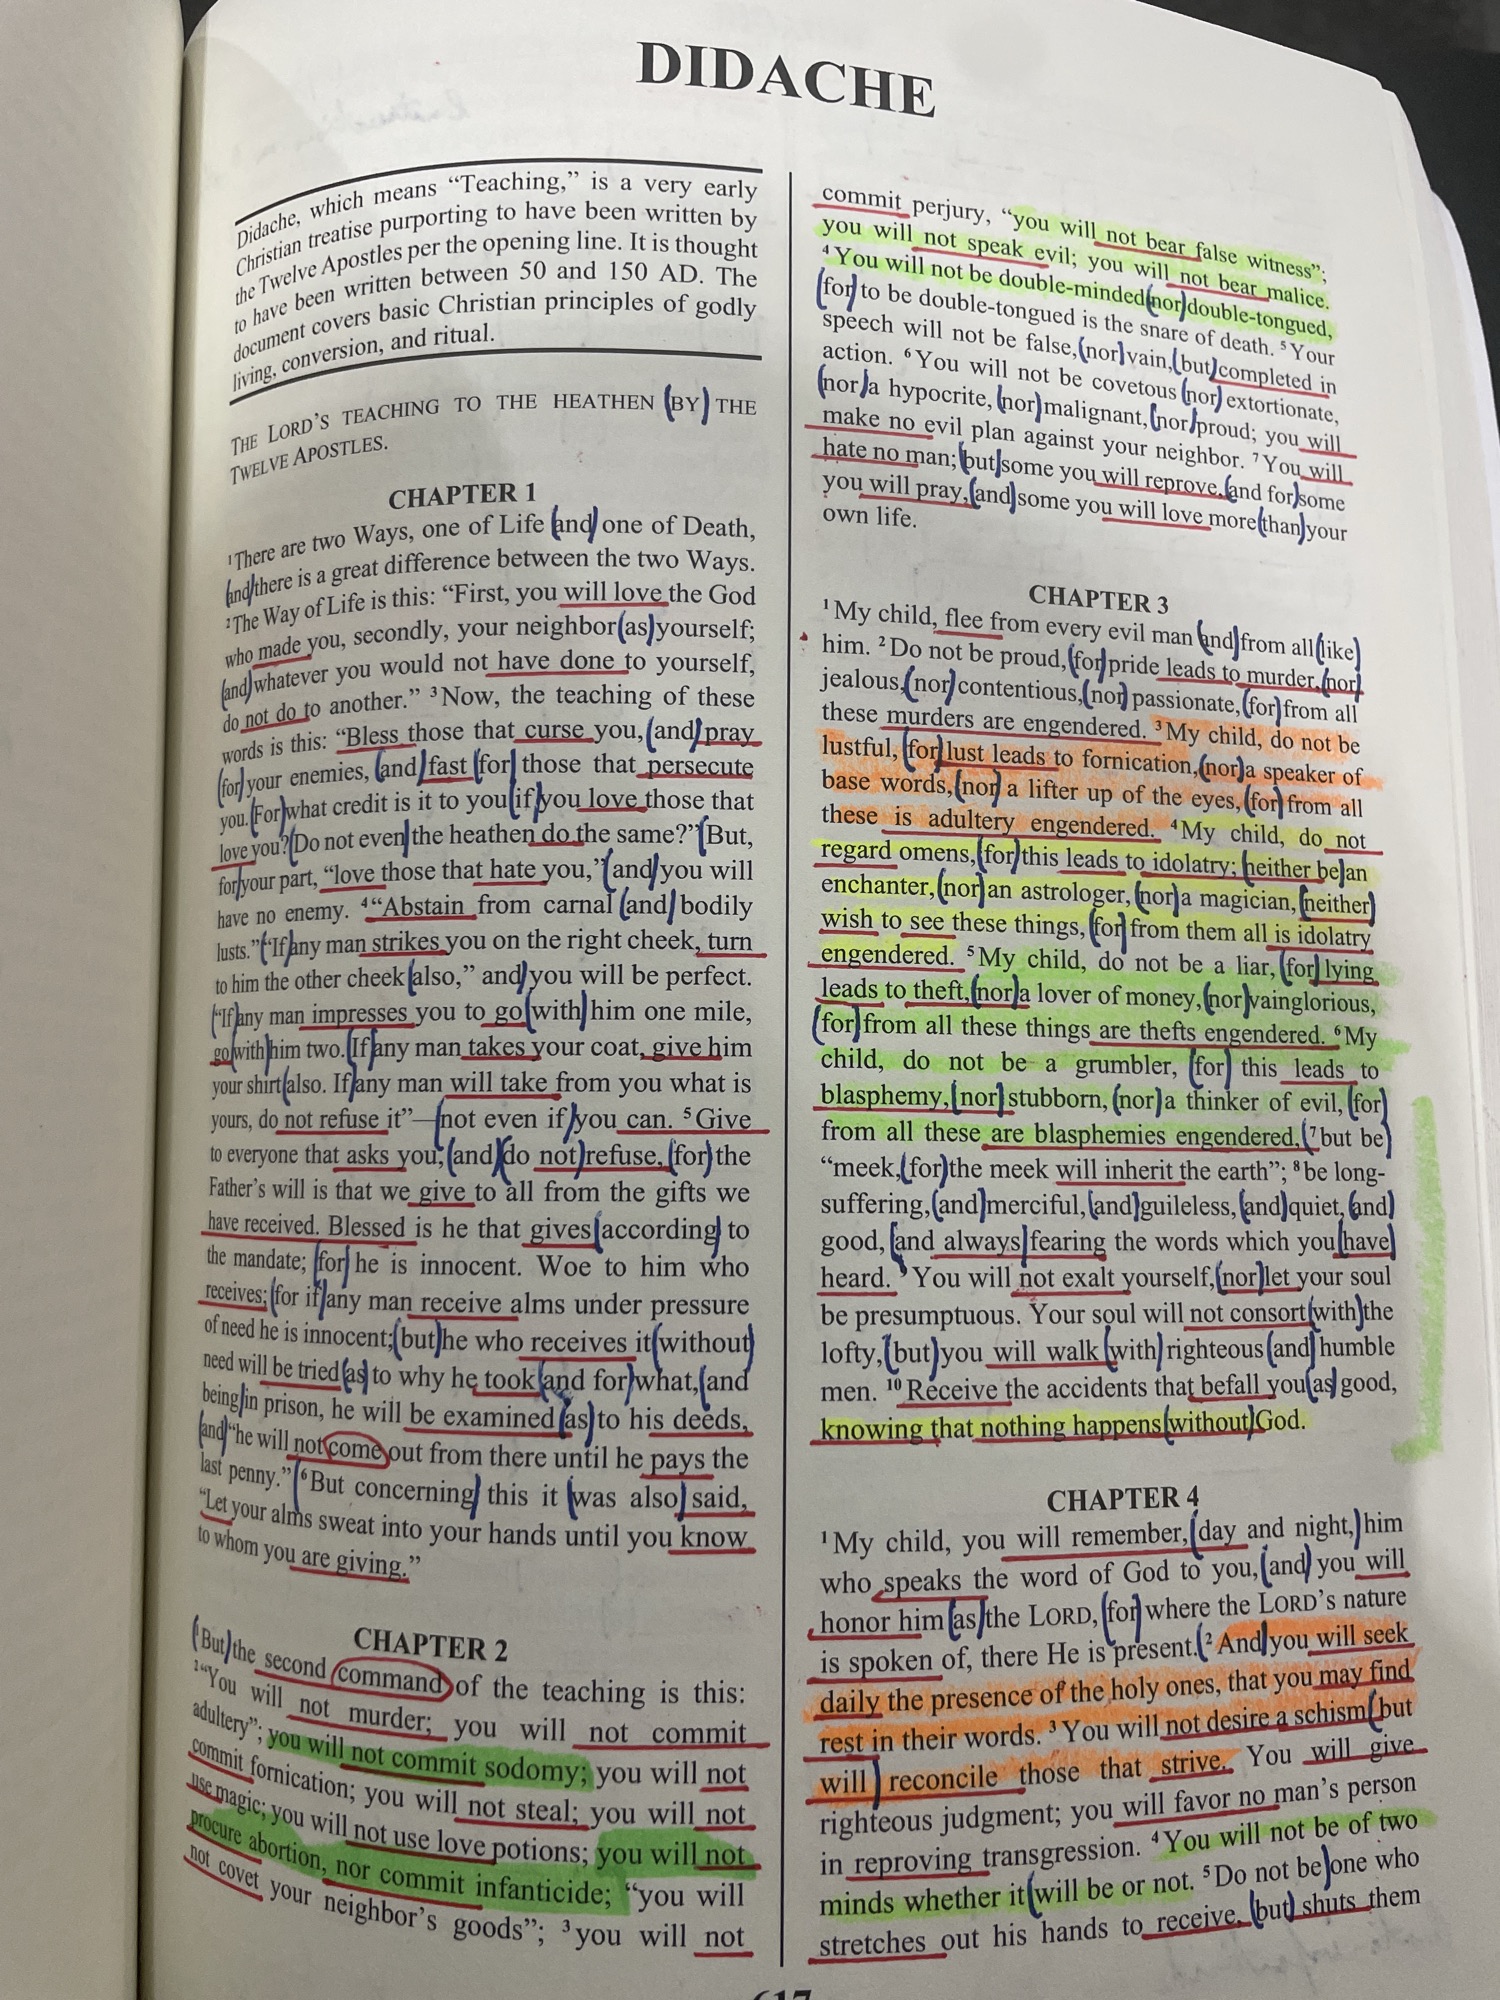 DIDACHE
Didache, which means “Teaching,” is a very early
Christian treatise purporting to have been written by
the Twelve Apostles per the opening line. It is thought
to have been written between 50 and 150 AD. The
document covers basic Christian principles of godly
living, conversion, and ritual.
THE LORD’S TEACHING TO THE HEATHEN (BY) THE
TWELVE APOSTLES.
CHAPTER 1
¹There are two Ways, one of Life (and) one of Death,
(and) there is a great difference between the two Ways.
²The Way of Life is this: “First, you will love the God
who made you, secondly, your neighbor (as) yourself;
(and) whatever you would not have done to yourself,
do not do to another.” ³Now, the teaching of these
words is this: “Bless those that curse you, (and) pray
(for) your enemies, (and) fast (for) those that persecute
you. (For) what credit is it to you (if) you love those that
love you? (Do not even) the heathen do the same?” (But,
for) your part, “love those that hate you,” (and) you will
have no enemy. ⁴“Abstain from carnal (and) bodily
lusts.” (“If) any man strikes you on the right cheek, turn
to him the other cheek (also,” and) you will be perfect.
(“If) any man impresses you to go (with) him one mile,
go (with) him two. (If) any man takes your coat, give him
your shirt (also. If) any man will take from you what is
yours, do not refuse it”—(not even if) you can. ⁵Give
to everyone that asks you, (and) (do not) refuse, (for) the
Father’s will is that we give to all from the gifts we
have received. Blessed is he that gives (according) to
the mandate; (for) he is innocent. Woe to him who
receives; (for if) any man receive alms under pressure
of need he is innocent; (but) he who receives it (without)
need will be tried (as) to why he took (and for) what, (and
being) in prison, he will be examined (as) to his deeds,
(and) “he will not come out from there until he pays the
last penny.” (⁶But concerning) this it (was also) said,
“Let your alms sweat into your hands until you know
to whom you are giving.”
CHAPTER 2
(¹But) the second command of the teaching is this:
²“You will not murder; you will not commit
adultery”; you will not commit sodomy; you will not
commit fornication; you will not steal; you will not
use magic; you will not use love potions; you will not
procure abortion, nor commit infanticide; “you will
not covet your neighbor’s goods”; ³you will not
commit perjury, “you will not bear false witness”;
you will not speak evil; you will not bear malice.
⁴You will not be double-minded (nor) double-tongued,
(for) to be double-tongued is the snare of death. ⁵Your
speech will not be false, (nor) vain, (but) completed in
action. ⁶You will not be covetous (nor) extortionate,
(nor) a hypocrite, (nor) malignant, (nor) proud; you will
make no evil plan against your neighbor. ⁷You will
hate no man; (but) some you will reprove, (and for) some
you will pray, (and) some you will love more (than) your
own life.
CHAPTER 3
¹My child, flee from every evil man (and) from all (like)
him. ²Do not be proud, (for) pride leads to murder, (nor)
jealous, (nor) contentious, (nor) passionate, (for) from all
these murders are engendered. ³My child, do not be
lustful, (for) lust leads to fornication, (nor) a speaker of
base words, (nor) a lifter up of the eyes, (for) from all
these is adultery engendered. ⁴My child, do not
regard omens, (for) this leads to idolatry; (neither be) an
enchanter, (nor) an astrologer, (nor) a magician, (neither)
wish to see these things, (for) from them all is idolatry
engendered. ⁵My child, do not be a liar, (for) lying
leads to theft, (nor) a lover of money, (nor) vainglorious,
(for) from all these things are thefts engendered. ⁶My
child, do not be a grumbler, (for) this leads to
blasphemy, (nor) stubborn, (nor) a thinker of evil, (for)
from all these are blasphemies engendered, (⁷but be)
“meek, (for) the meek will inherit the earth”; ⁸be long-
suffering, (and) merciful, (and) guileless, (and) quiet, (and)
good, (and always) fearing the words which you (have)
heard. ⁹You will not exalt yourself, (nor) let your soul
be presumptuous. Your soul will not consort (with) the
lofty, (but) you will walk (with) righteous (and) humble
men. ¹⁰Receive the accidents that befall you (as) good,
knowing that nothing happens (without) God.
CHAPTER 4
¹My child, you will remember, (day and night,) him
who speaks the word of God to you, (and) you will
honor him (as) the LORD, (for) where the LORD’s nature
is spoken of, there He is present. (²And) you will seek
daily the presence of the holy ones, that you may find
rest in their words. ³You will not desire a schism (but
will) reconcile those that strive. You will give
righteous judgment; you will favor no man’s person
in reproving transgression. ⁴You will not be of two
minds whether it (will be or not. ⁵Do not be) one who
stretches out his hands to receive, (but) shuts them
617